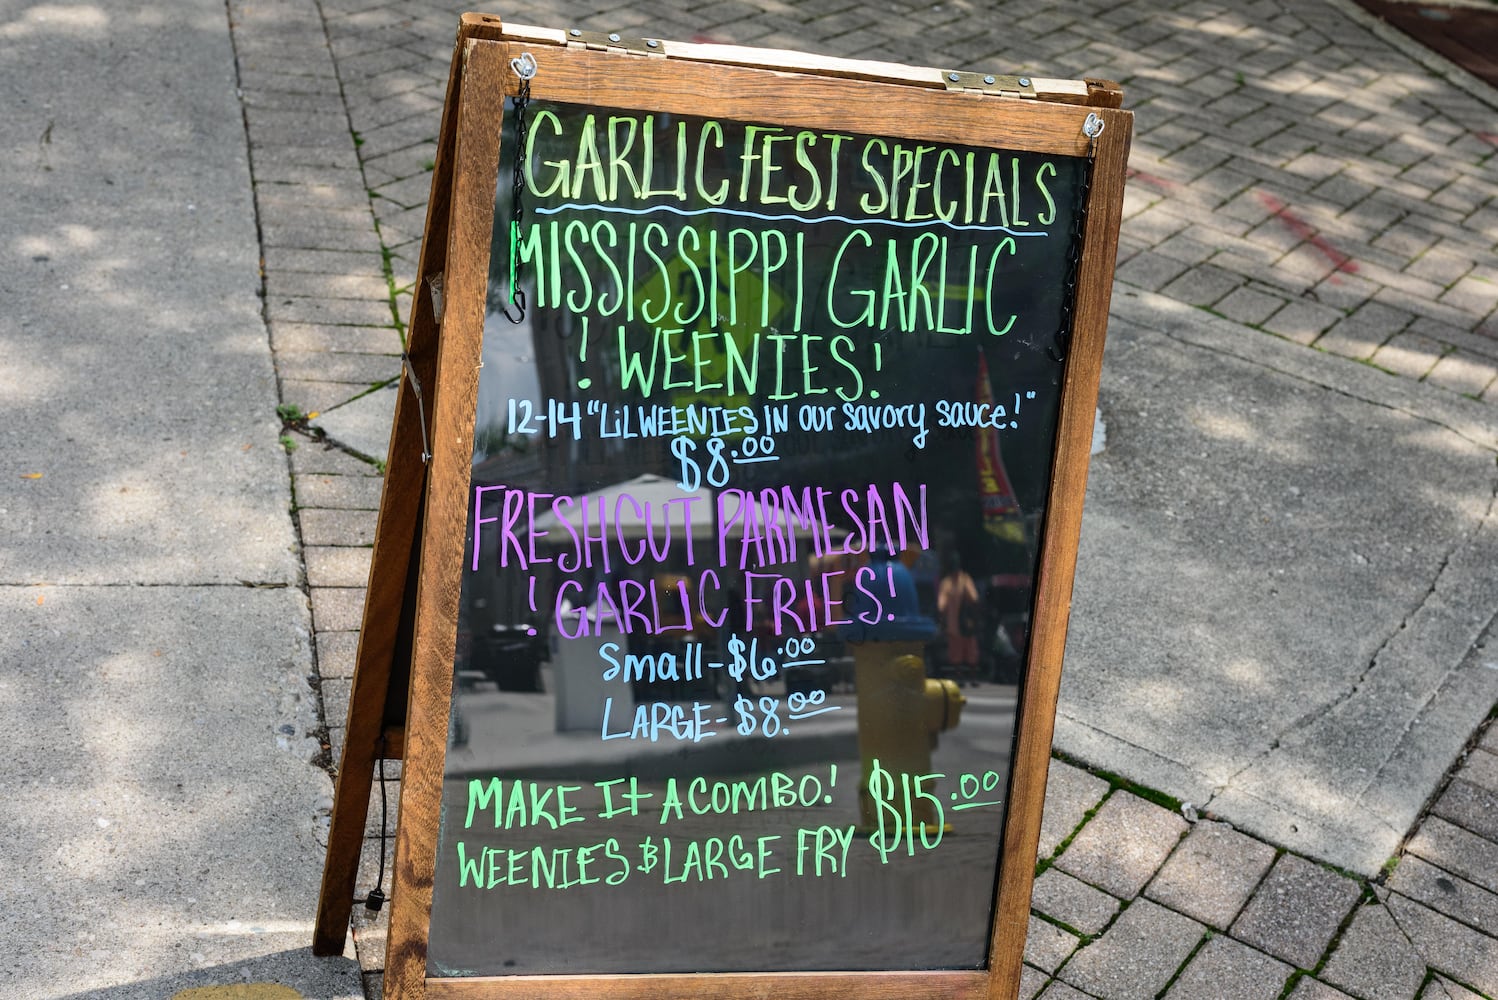 GARLIC FEST SPECIALS
MISSISSIPPI GARLIC
! WEENIES!
12-14 "LiL WEENIES IN our savory sauce!"
$8.00
FRESH CUT PARMESAN
! GARLIC FRIES!
Small-$6.00
LARGE-$8.00
MAKE It A COMBO!
WEENIES & LARGE FRY $15.00